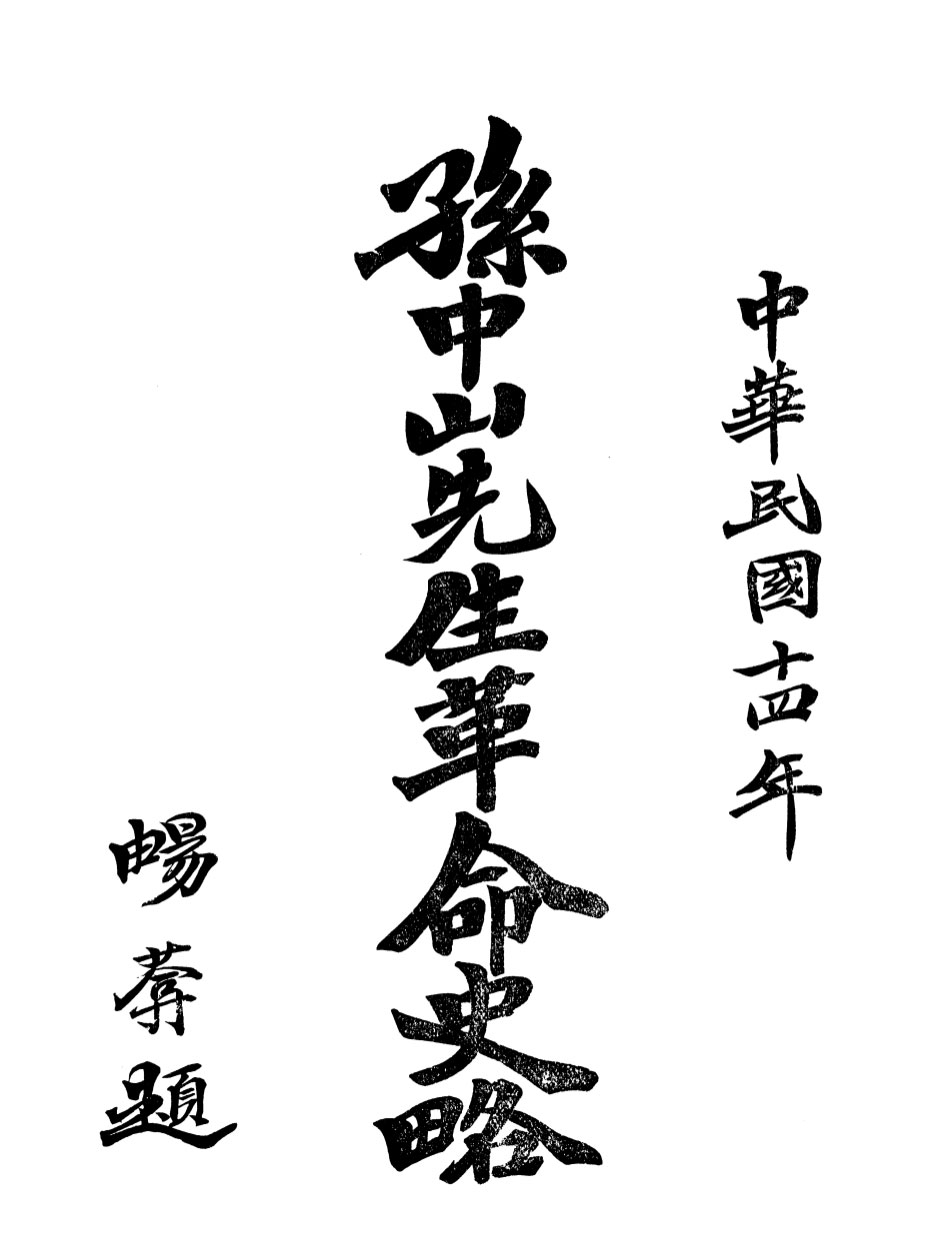 中華民國十四年
孫中山先生革命史略
暢葊題